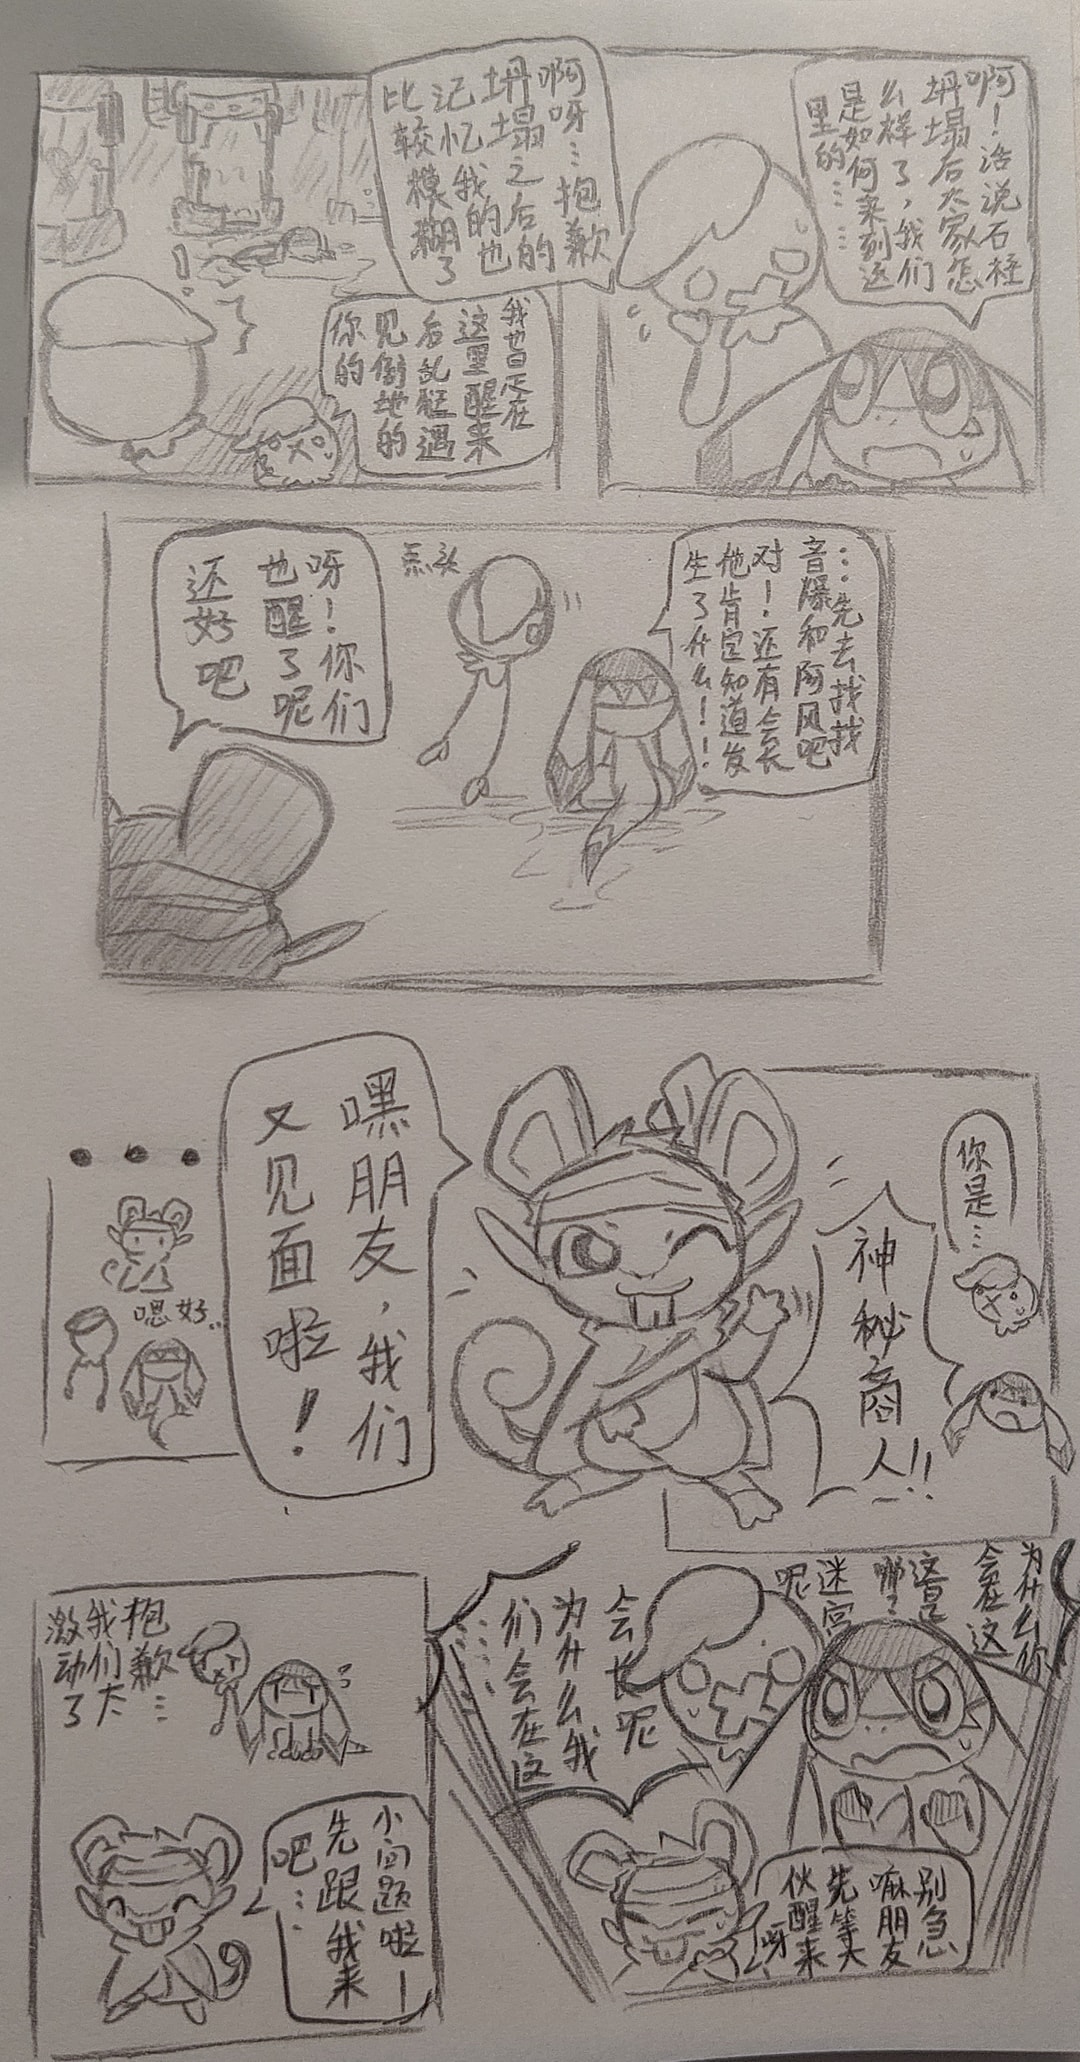 啊！话说石柱
坍塌后大家怎
么样了，我们
是如何来到这
里的……
啊呀…抱歉
坍塌之后的
记忆我的也
比较模糊了
我也是在
这里醒来
后乱逛遇
见倒地的
你的
…先去找找
音爆和阿风吧
对！还有会长
他肯定知道发
生了什么！！
点头
呀！你们
也醒了呢
还好吧
你是…
神秘商人!!
嘿朋友，我们
又见面啦！
...
嗯好..
为什么你
会在这
这是
哪？
迷宫
呢
会长呢
为什么我
们会在这
……
别急
嘛朋友
先等大
伙醒来
呀
抱歉…
我们太
激动了
小问题啦—
先跟我来
吧……